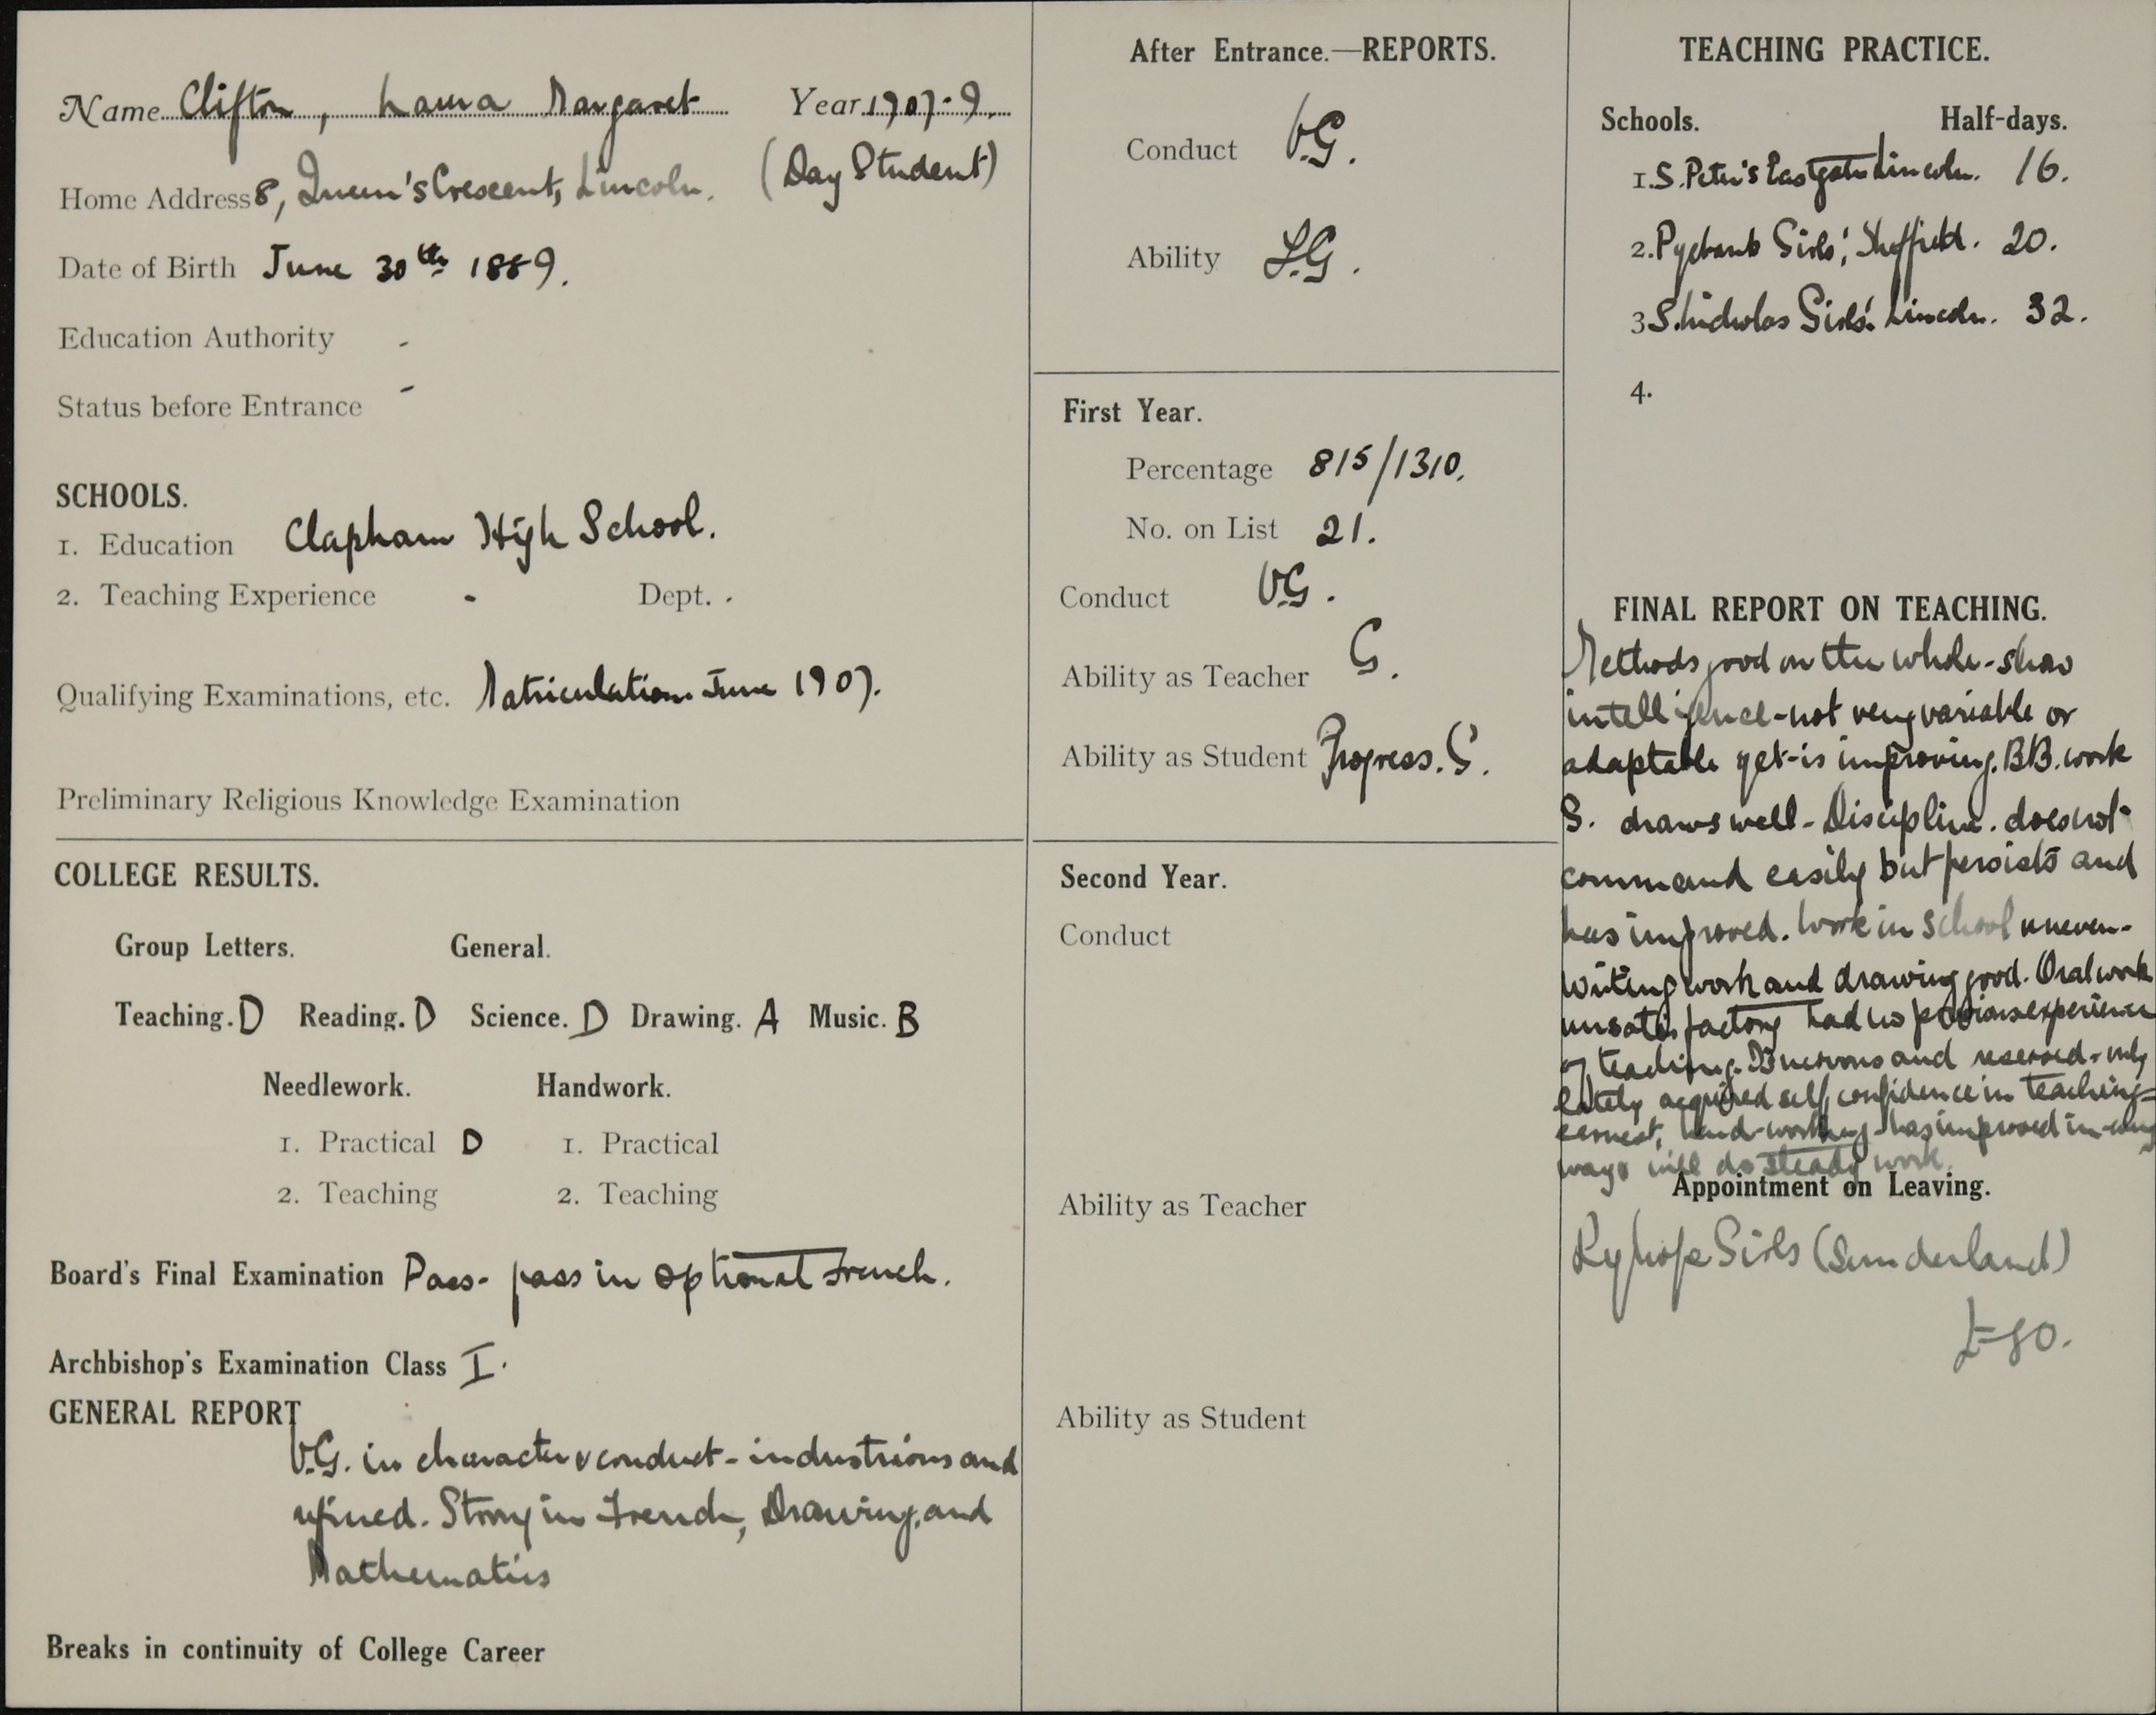 Name Clifton, Laura Margaret Year 1907-9.
Home Address 8, Queen's Crescent, Lincoln. (Day Student)
Date of Birth June 30th 1889.
Education Authority -
Status before Entrance -
SCHOOLS.
1. Education Clapham High School.
2. Teaching Experience - Dept. -
Qualifying Examinations, etc. Matriculation June 1907.
Preliminary Religious Knowledge Examination
COLLEGE RESULTS.
Group Letters. General.
Teaching. D Reading. D Science. D Drawing. A Music. B
Needlework. Handwork.
1. Practical D 1. Practical
2. Teaching 2. Teaching
Board's Final Examination Pass - pass in optional French.
Archbishop's Examination Class I.
GENERAL REPORT
V.G. in character & conduct - industrious and
refined. Strong in French, Drawing, and
Mathematics
Breaks in continuity of College Career
After Entrance.—REPORTS.
Conduct V.G.
Ability F.G.
First Year.
Percentage 815/1310.
No. on List 21.
Conduct V.G.
Ability as Teacher G.
Ability as Student Progress. G.
Second Year.
Conduct
Ability as Teacher
Ability as Student
TEACHING PRACTICE.
Schools. Half-days.
1. S. Peter's Eastgate Lincoln. 16.
2. Pyebank Girls', Sheffield. 20.
3 S. Nicholas Girls'. Lincoln. 32.
4.
FINAL REPORT ON TEACHING.
Methods good on the whole - show
intelligence - not very variable or
adaptable yet - is improving. BB. work
G. draws well - Discipline. does not
command easily but persists and
has improved. Work in school uneven -
Writing work and drawing good. Oral work
unsatisfactory had no previous experience
of teaching. Is nervous and reserved - only
lately acquired self confidence in teaching -
earnest, hard-working - has improved in many
ways will do steady work.
Appointment on Leaving.
Ryhope Girls (Sunderland)
£80.